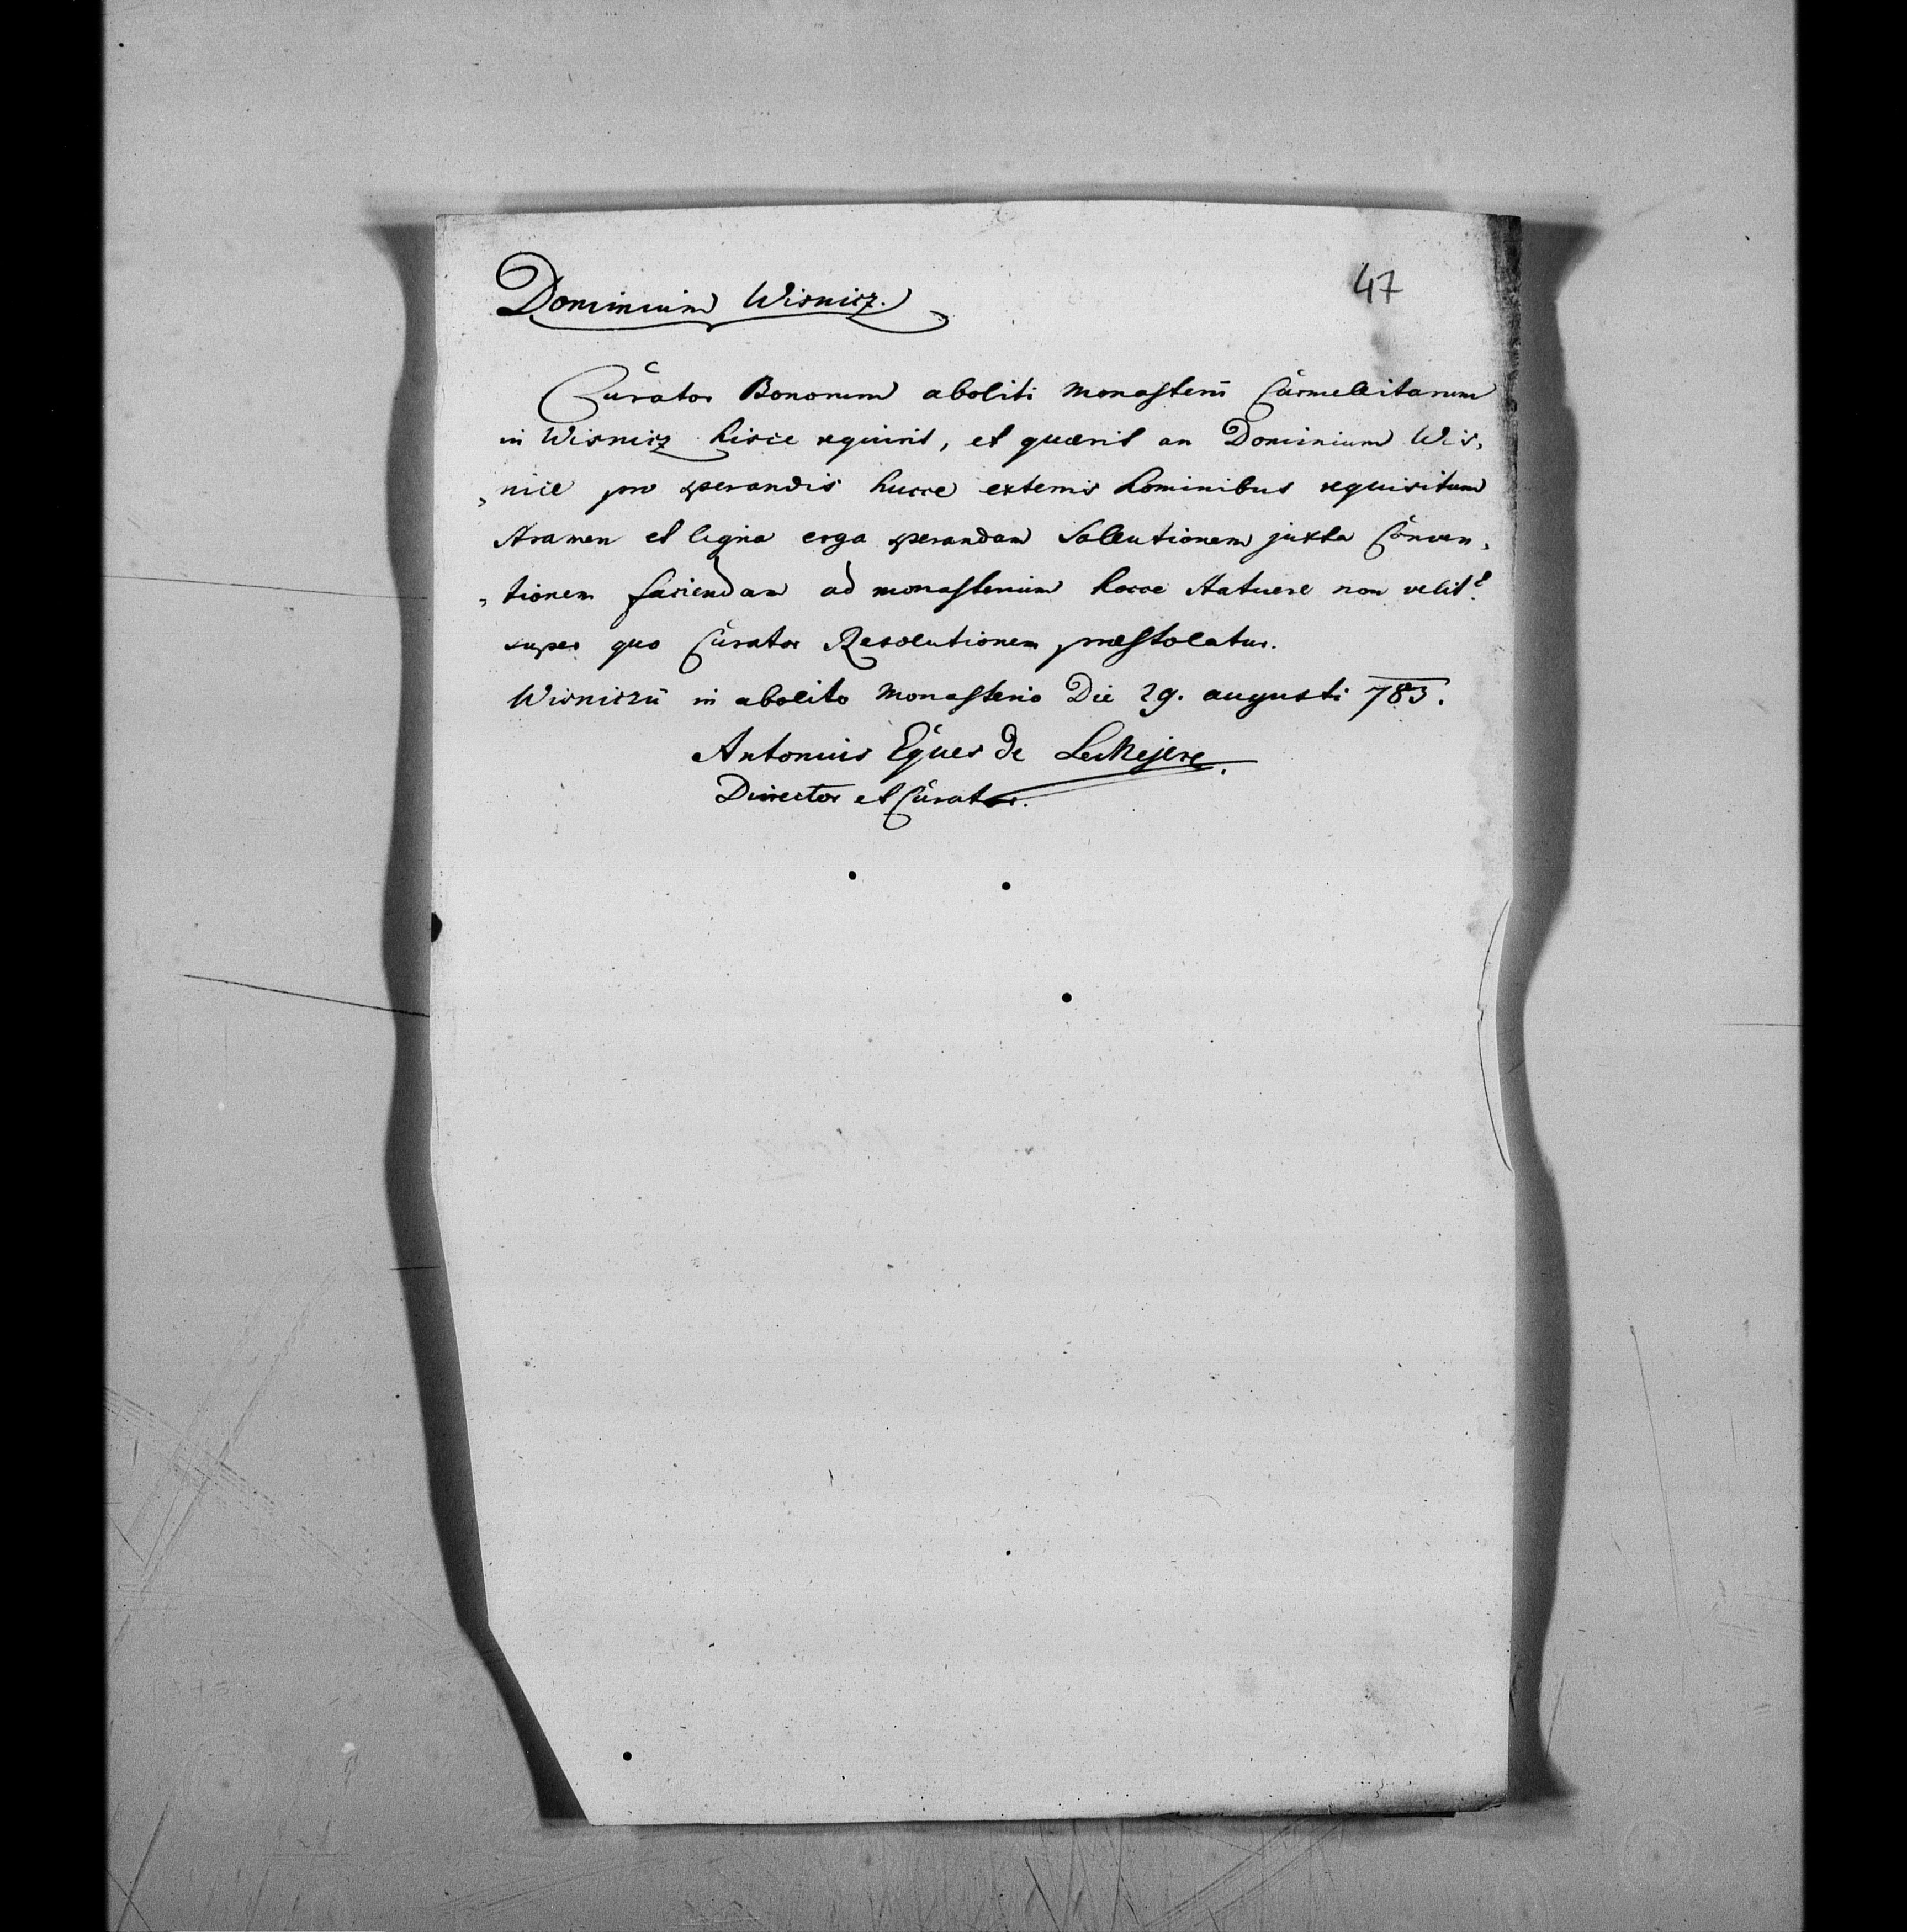 47
Dominium Wisnicz.
Curator Bonorum aboliti Monasterii Carmelitarum
in Wisnicz hisce requirit, et quærit an Dominium Wis,
„nice pro sperandis hucce externis hominibus requisitum
stramen et ligna erga sperandam Solutionem juxta Conven„
„tionem faciendam ad monasterium hocce statuere non velit?
super quo Curator Resolutionem præstolatur.
Wisniczii in abolito Monasterio Die 29. augusti 783.
Antonius Eques de
Director et Curator.